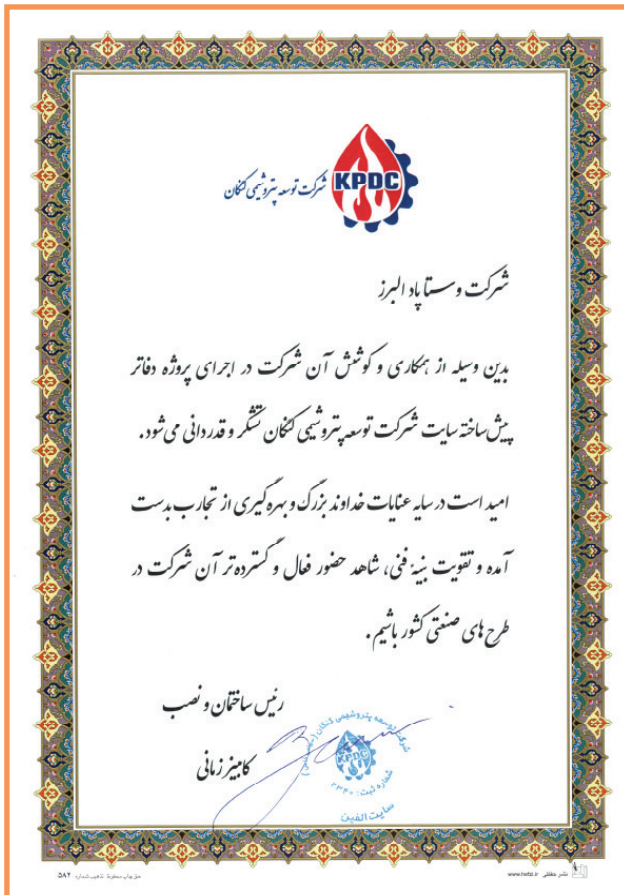 شرکت توسعه پتروشیمی کنگان
KPDC
شرکت وستا پاد البرز
بدین وسیله از همکاری و کوشش آن شرکت در اجرای پروژه دفاتر
پیش‌ساخته سایت شرکت توسعه پتروشیمی کنگان تشکر و قدردانی می‌شود.
امید است در سایه عنایات خداوند بزرگ و بهره‌گیری از تجارب بدست
آمده و تقویت بنیهٔ فنی، شاهد حضور فعال و گسترده‌تر آن شرکت در
طرح‌های صنعتی کشور باشیم.
رئیس ساختمان و نصب
کامبیز زمانی
شرکت توسعه پتروشیمی کنگان
KPDC
شماره ثبت: ۲۳۴۰
سایت الفین
حق چاپ محفوظ تذهیب شماره ۵۸۲
www.hefzi.ir نشر حفظی